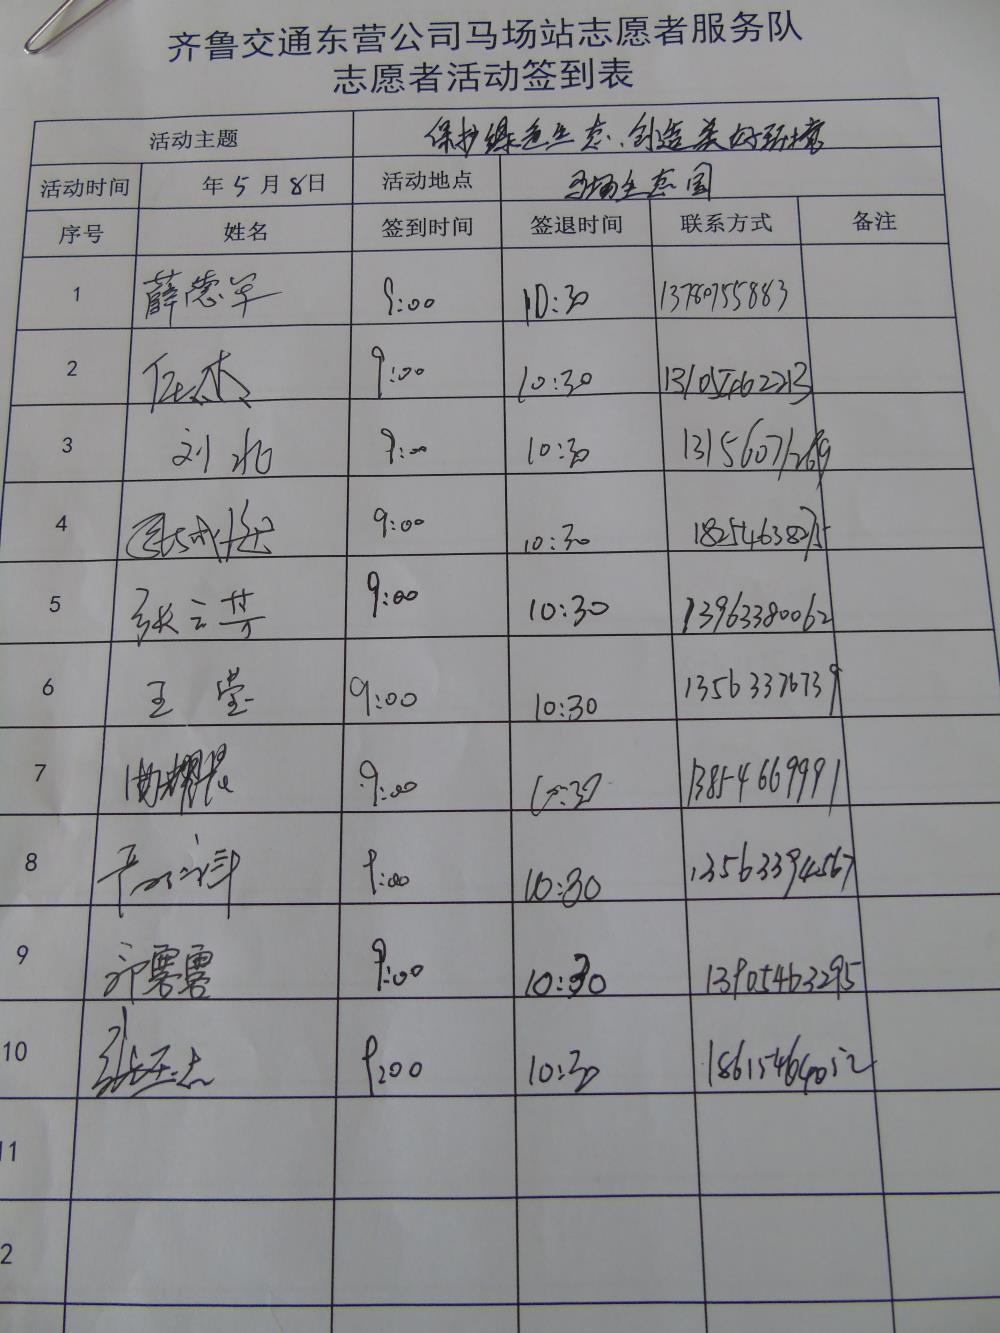 齐鲁交通东营公司马场站志愿者服务队
志愿者活动签到表
活动主题 保护绿色生态、创造美好环境
活动时间 年5月8日 活动地点 马场生态园
序号 姓名 签到时间 签退时间 联系方式 备注
1 薛德军 9:00 10:30 13780755883
2 任杰 9:00 10:30 13105462213
3 刘 9:00 10:30 13156071269
4 9:00 10:30 18254638275
5 张云芬 9:00 10:30 13963380062
6 王莹 9:00 10:30 13563376739
7 曲耀 9:00 10:30 13854669991
8 9:00 10:30 13563394567
9 祁雾雾 9:00 10:30 13905463295
10 9:00 10:30
11
2